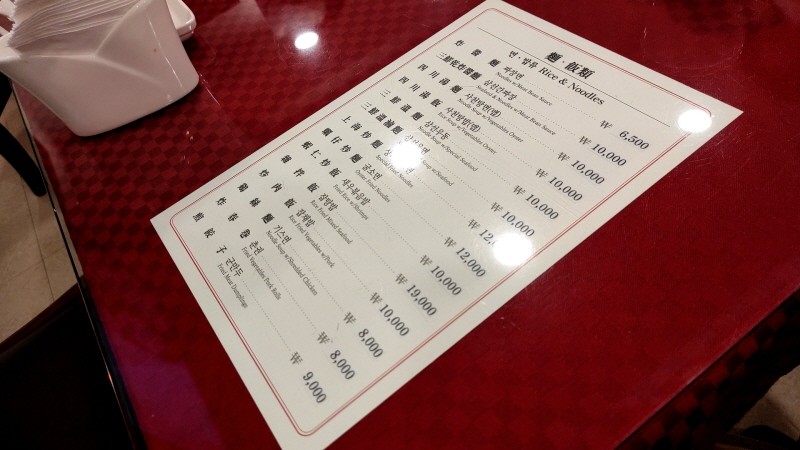 麵·飯類
면·밥류 Rice & Noodles
炸醬麵 짜장면 ₩ 6,500
Noodles w/Meat Bean Sauce
三鮮乾炸醬麵 삼선간짜장 ₩ 10,000
Seafood & Noodles w/Meat Bean Sauce
四川湯麵 사천탕면(맵) ₩ 10,000
Noodle Soup w/Vegetables Oyster
四川湯飯 사천탕밥(맵) ₩ 10,000
Rice Soup w/Vegetables Oyster
三鮮溫麵 삼선우동 ₩ 10,000
Noodle Soup w/Special Seafood
三鮮溫滷麵 ₩
Noodle Soup w/Seafood
上海炒麵
Special Fried Noodles
蠔仔炒麵 굴소면 ₩ 12,000
Oyster Fried Noodles
蝦仁炒飯 새우볶음밥 ₩ 10,000
Fried Rice w/Shrimps
雜拌飯 잡탕밥 ₩ 19,000
Rice Fried Mixed Seafood
炒肉飯 잡채밥 ₩ 10,000
Rice Fried Vegetables w/Pork
鷄絲麵 기스면 ₩ 8,000
Noodle Soup w/Shredded Chicken
炸春卷 춘권 ₩ 8,000
Fried Vegetables Pork Rolls
煎餃子 군만두 ₩ 9,000
Fried Meat Dumplings